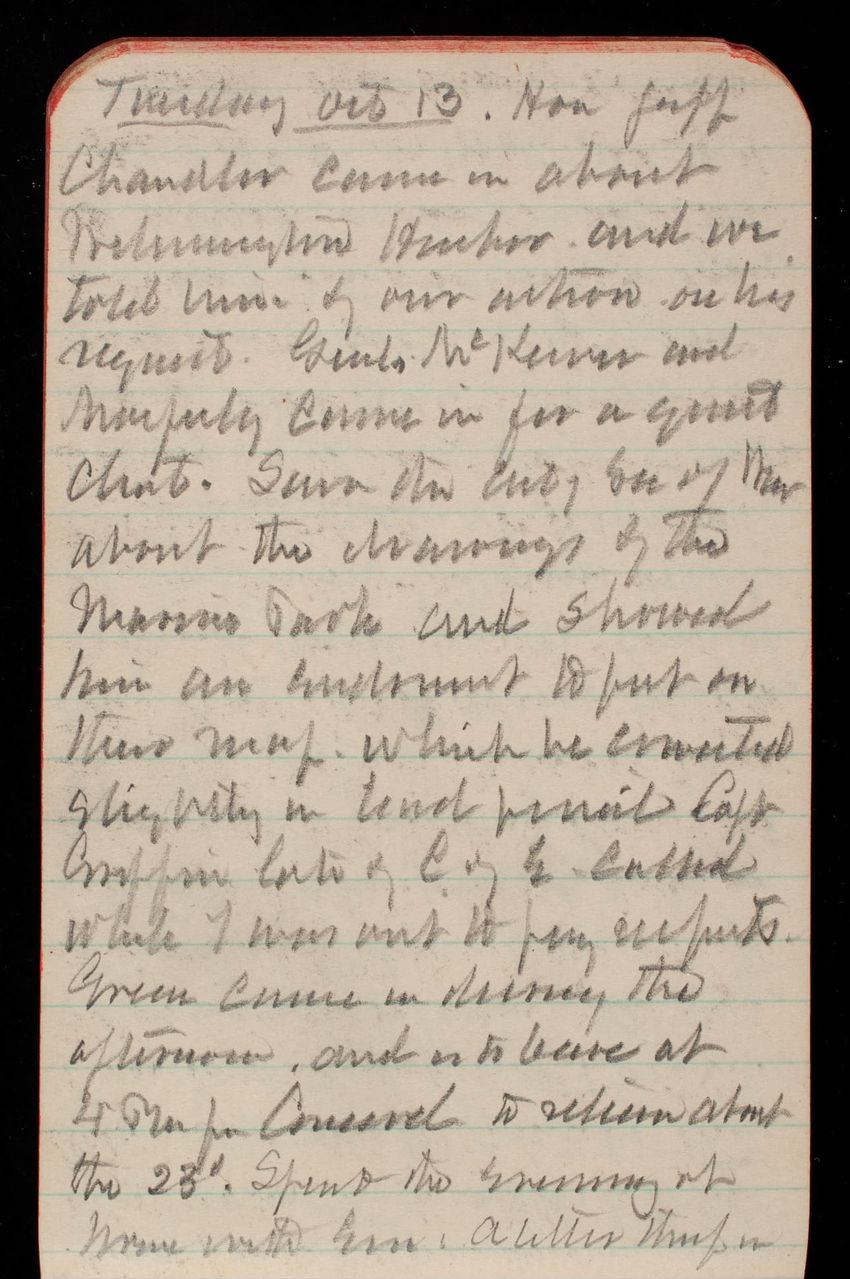 Tuesday Oct 13. Hon Jeff
Chandler came in about
Wilmington Harbor and we
told him of our action on his
request. Genl. McKeever and
came in for a quiet
chat. Saw the actg Sec of War
about the drawings of the
and showed
him an endorsmt to put on
their map. which he corrected
slightly in lead pencil Capt
Griffin late of C of E called
while I was out to pay respects.
Green came in during the
afternoon. and is to leave at
4 for Concord to return about
the 23d. Spent the evening at
home with Em: A letter